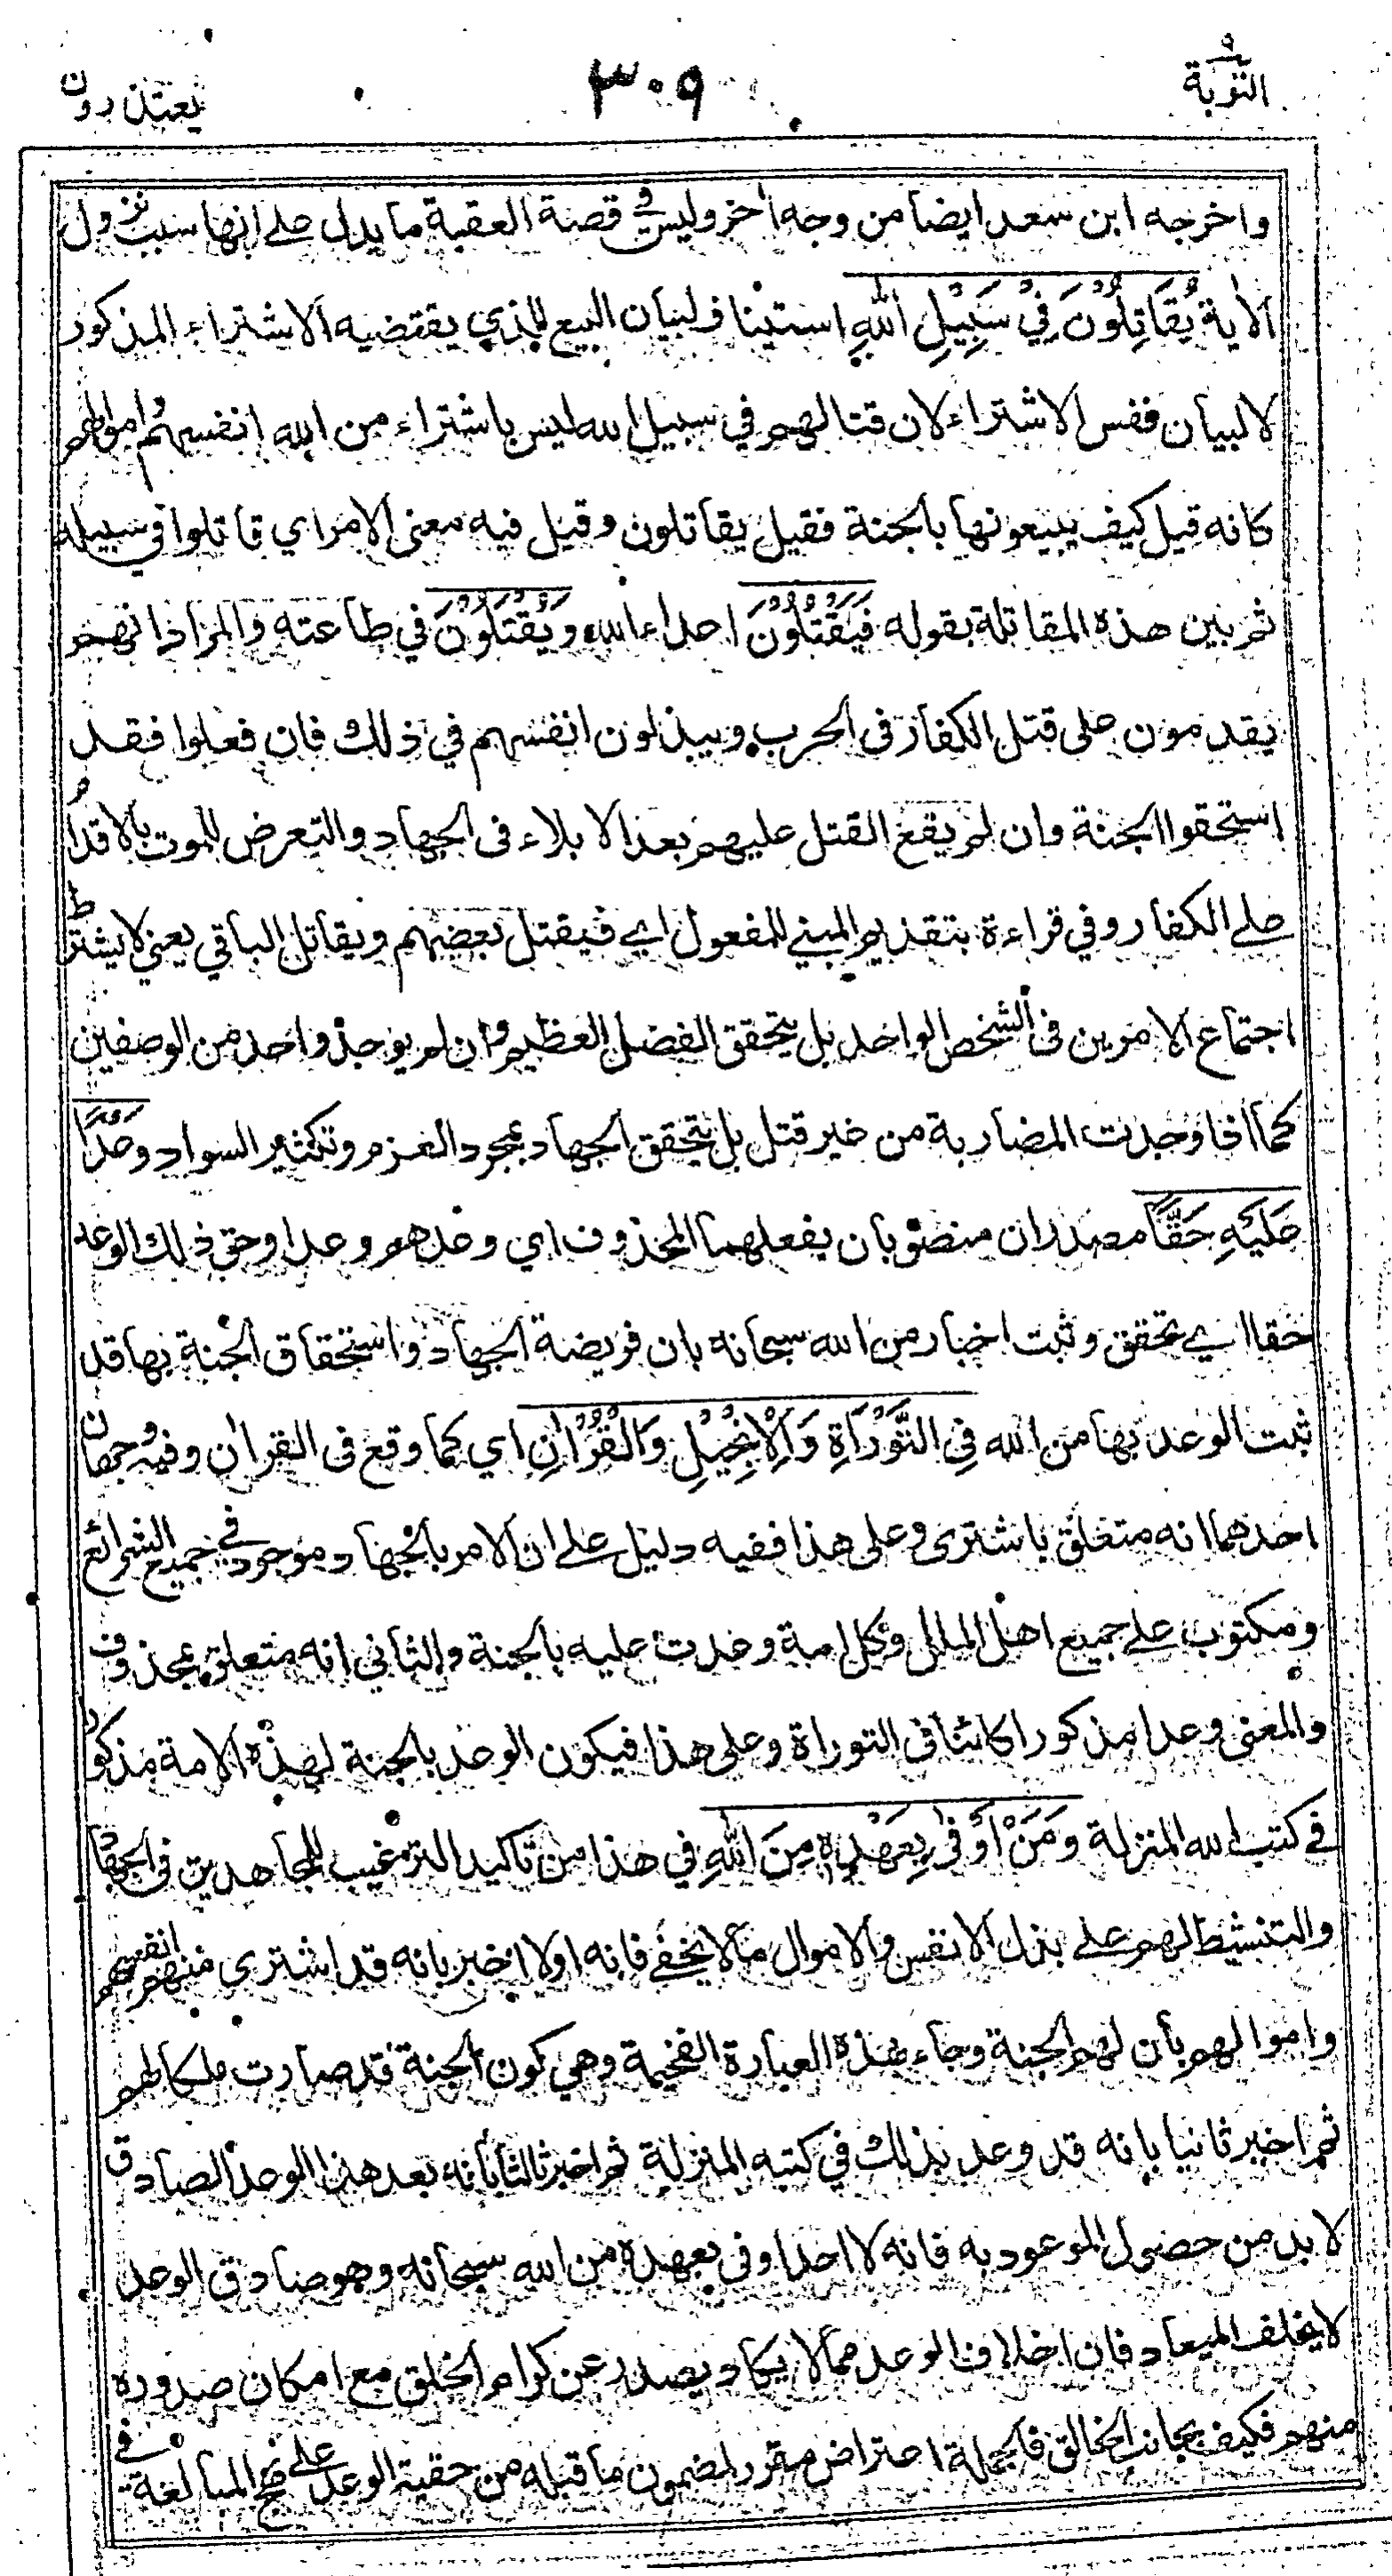 التوبة ٩
٣٠٩
يعتذرون
واخرجه ابن سعد ايضا من وجه اخر وليس في قصة العقبة ما يدل على انها سبب نزول
الاية يُقَاتِلُوْنَ فِيْ سَبِيْلِ اللهِ استيناف لبيان البيع الذي يقتضيه الاشتراء المذكور
لا لبيان نفس الاشتراء لان قتالهم في سبيل الله ليس باشتراء من الله انفسهم واموالهم
كانه قيل كيف يبيعونها بالجنة فقيل يقاتلون وقيل فيه معنى الامر اي قاتلوا في سبيله
ثم بين هذه المقاتلة بقوله فَيَقْتُلُوْنَ اعداء الله وَيُقْتَلُوْنَ في طاعته والمراد انهم
يقدمون على قتل الكفار في الحرب ويبذلون انفسهم في ذلك فان فعلوا فقد
استحقوا الجنة وان لم يقع القتل عليهم بعد الابلاء في الجهاد والتعرض للموت بالاقدام
على الكفار وفي قراءة بتقديم المبني للمفعول اي فيقتل بعضهم ويقاتل الباقي يعني لا يشترط
اجتماع الامرين في الشخص الواحد بل يتحقق الفضل العظيم وان لم يوجد واحد من الوصفين
كما اذا وجدت المضاربة من غير قتل بل يتحقق الجهاد بمجرد العزم وتكثير السواد وَعْدًا
عَلَيْهِ حَقًّا مصدران منصوبان بفعلهما المحذوف اي وعدهم وعدا وحق ذلك الوعد
حقا اي تحقق وثبت اخبار من الله سبحانه بان فريضة الجهاد واستحقاق الجنة بها قد
ثبت الوعد بها من الله فِي التَّوْرَاةِ وَالْاِنْجِيْلِ وَالْقُرْاٰنِ اي كما وقع في القران وفيه وجهان
احدهما انه متعلق باشترى وعلى هذا ففيه دليل على ان الامر بالجهاد موجود في جميع الشرائع
ومكتوب على جميع اهل الملل وكل امة وعدت عليه بالجنة والثاني انه متعلق بمحذوف
والمعنى وعدا مذكورا كائنا في التوراة وعلى هذا فيكون الوعد بالجنة لهذه الامة مذكورا
في كتب الله المنزلة وَمَنْ اَوْفٰى بِعَهْدِهٖ مِنَ اللهِ في هذا من تاكيد الترغيب للمجاهدين في الجهاد
والتنشيط لهم على بذل الانفس والاموال ما لا يخفى فانه اولا اخبر بانه قد اشترى منهم انفسهم
واموالهم بأن لهم الجنة وجاء بهذه العبارة الفخيمة وهي كون الجنة قد صارت ملكا لهم
ثم اخبر ثانيا بانه قد وعد بذلك في كتبه المنزلة ثم اخبر ثالثا بأنه بعد هذا الوعد الصادق
لا بد من حصول الموعود به فانه لا احد اوفى بعهده من الله سبحانه وهو صادق الوعد
لا يخلف الميعاد فان اخلاف الوعد مما لا يكاد يصدر عن كرام الخلق مع امكان صدوره
منهم فكيف بجانب الخالق فالجملة اعتراض مقرر لمضمون ما قبله من حقية الوعد على نهج المبالغة في